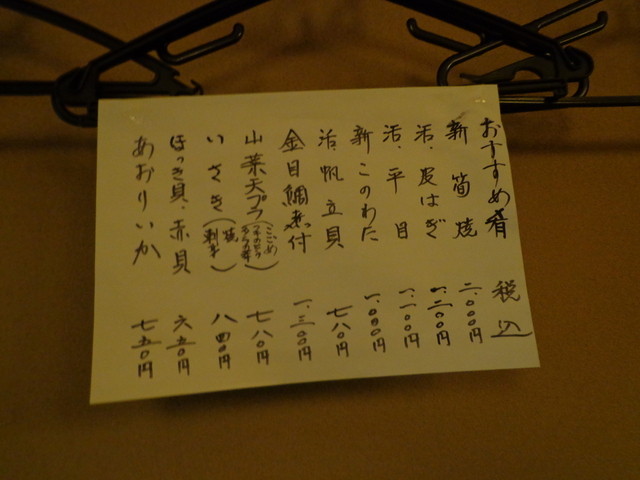 おすすめ肴 税込
新 筍 焼 二、〇〇〇円
活、皮はぎ 一、二〇〇円
活、平目 一、一〇〇円
新このわた 一、〇〇〇円
活帆立貝 七八〇円
金目鯛煮付 一、三〇〇円
山菜天プラ(こごめ 七八〇円
いさき(焼 刺身) 八四〇円
ほっき貝、赤貝 六五〇円
あおりいか 七五〇円